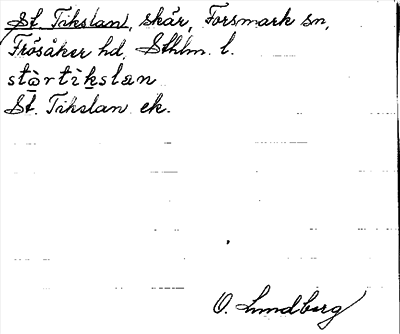 St. Tikslan, skär, Forsmark sn,
Frösåker hd, Sthlm. l.
stὼrtìk̲slan
St. Tikslan ek.
O. Lundberg